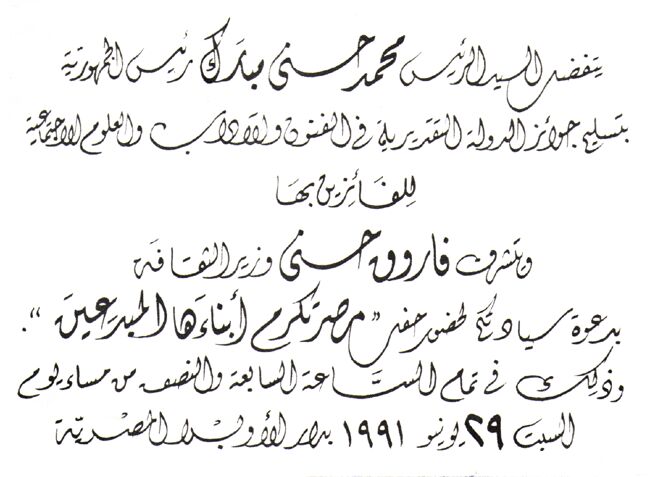 يتفضل السيد الرئيس محمد حسنى مبارك رئيس الجمهورية
بتسليم جوائز الدولة التقديرية فى الفنون والآداب والعلوم الاجتماعية
للفائزين بها
ويتشرف فاروق حسنى وزير الثقافة
بدعوة سيادتكم لحضور حفل " مصر تكرم أبناءها المبدعين ".
وذلك فى تمام الساعة السابعة والنصف من مساء يوم
السبت ٢٩ يونيو ١٩٩١ بدار الأوبرا المصرية